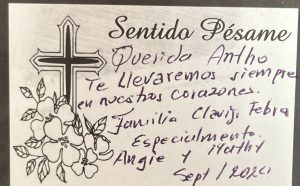 Sentido Pésame
Querido Antho
Te llevaremos siempre
en nuestros corazones.
Familia Clavijo Febres
Especialmente
Angie y Nathy
Sept / 2020